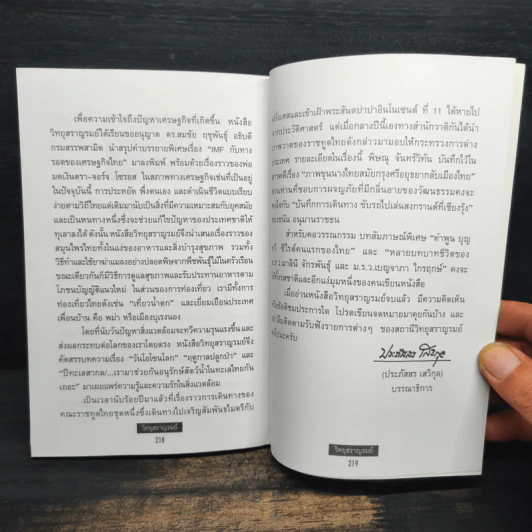 เพื่อความเข้าใจถึงปัญหาเศรษฐกิจที่เกิดขึ้น หนังสือ
วิทยุสราญรมย์ได้เรียนขออนุญาต ดร.สมชัย ฤชุพันธุ์ อธิบดี
กรมสรรพสามิต นำสรุปคำบรรยายพิเศษเรื่อง "IMF กับทาง
รอดของเศรษฐกิจไทย" มาลงพิมพ์ พร้อมด้วยเรื่องราวของพ่อ
มดเงินตรา-จอร์จ โซรอส ในสภาพทางเศรษฐกิจเช่นที่เป็นอยู่
ในปัจจุบันนี้ การประหยัด พึ่งตนเอง และดำเนินชีวิตแบบเรียบ
ง่ายตามวิถีไทยแต่เดิมมานับเป็นสิ่งที่มีความเหมาะสมกับยุคสมัย
และเป็นหนทางหนึ่งซึ่งจะช่วยแก้ไขปัญหาของประเทศชาติให้
ทุเลาลงได้ ดังนั้น หนังสือวิทยุสราญรมย์จึงนำเสนอเรื่องราวของ
สมุนไพรไทยทั้งในแง่ของอาหารและสิ่งบำรุงสุขภาพ รวมทั้ง
วิธีทำและใช้ยาฆ่าแมลงอย่างปลอดพิษจากพืชพันธุ์ไม้ในครัวเรือน
ขณะเดียวกันก็มีวิธีการดูแลสุขภาพและรับประทานอาหารตาม
โภชนบัญญัติแนวใหม่ ในส่วนของการท่องเที่ยว เรามีทั้งการ
ท่องเที่ยวไทยดังเช่น "เที่ยวน้ำตก" และเยี่ยมเยือนประเทศ
เพื่อนบ้าน คือ พม่า หรือเมืองบุเรงนอง
โดยที่นับวันปัญหาสิ่งแวดล้อมจะทวีความรุนแรงขึ้น และ
ส่งผลกระทบต่อโลกของเราโดยตรง หนังสือวิทยุสราญรมย์จึง
คัดสรรบทความเรื่อง "วันโอโซนโลก" "ฤดูกาลปลูกป่า" และ
"ปีทะเลสากล/...เรามาช่วยกันอนุรักษ์สัตว์น้ำในทะเลไทยกัน
เถอะ" มาเผยแพร่ความรู้และความรักในสิ่งแวดล้อม
เป็นเวลานับร้อยปีมาแล้วที่เรื่องราวการเดินทางของ
คณะราชทูตไทยชุดหนึ่งซึ่งเดินทางไปเจริญสัมพันธไมตรีกับ
วิทยุสราญรมย์
218
และเข้าเฝ้าพระสันตปาปาอินโนเซนต์ ที่ 11 ได้หายไป
จากประวัติศาสตร์ แต่เมื่อกลางปีนี้เองทางสำนักวาติกันได้นำ
ภาพวาดของราชทูตไทยดังกล่าวมามอบให้กระทรวงการต่าง
ประเทศ รายละเอียดในเรื่องนี้ พิษณุ จันทร์วิทัน บันทึกไว้ใน
เรื่อง "ภาพขุนนางไทยสมัยกรุงศรีอยุธยากลับเมืองไทย"
ท่านที่ชอบการผจญภัยที่มีกลิ่นอายของวัฒนธรรมคงจะ
"บันทึกการเดินทาง ขับรถไปเล่นสงกรานต์ที่เชียงรุ้ง"
อนุมานราชธน
สำหรับคอวรรณกรรม บทสัมภาษณ์พิเศษ "คำพูน บุญ
ซีไรต์คนแรกของไทย" และ "หลายบทบาทชีวิตของ
จักรพันธุ์ และ ม.ร.ว.เบญจาภา ไกรฤกษ์" คงจะ
และอีกแง่มุมหนึ่งของคนเขียนหนังสือ
เมื่ออ่านหนังสือวิทยุสราญรมย์จบแล้ว มีความคิดเห็น
หรือข้อติชมประการใด โปรดเขียนจดหมายมาคุยกันบ้าง และ
ติดตามรับฟังรายการต่างๆ ของสถานีวิทยุสราญรมย์
นะครับ
(ประภัสสร เสวิกุล)
บรรณาธิการ
วิทยุสราญรมย์
219